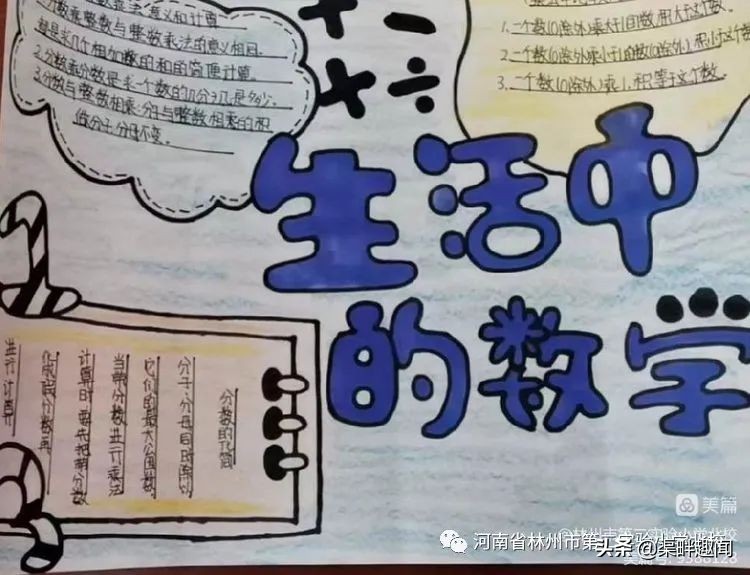 分数乘法意义和计算
分数乘整数与整数乘法的意义相同。
都是求几个相加数的和的简便计算。
2.分数乘分数是求一个数的几分之几是多少。
3.分数与整数相乘分子与整数相乘的积
做分子分母不变。
+ -
× ÷
1.一个数(0除外)乘大于1的数,积大于这个数。
2.一个数(0除外)乘小于1的数(0除外),积小于这个数
3.一个数(0除外)乘1,积等于这个数。
生活中
的数学
分数的化简
分子、分母同时除以
它们的最大公因数
当带分数进行乘法
计算时,要先把带分数
化成假分数再
进行计算
美篇
@林州市第三实验小学北校
河南省林州市第
头条 @渠畔趣闻
美篇号: 9586128